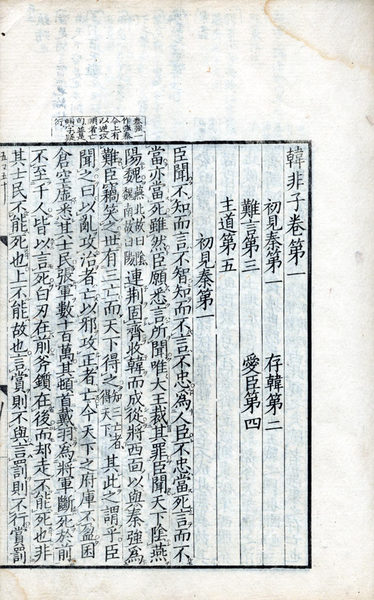 韓非子卷第一
初見秦第一 存韓第二
難言第三 愛臣第四
主道第五
初見秦第一
臣聞不知而言不智知而不言不忠為人臣不忠當死言而不
當亦當死雖然臣願悉言所聞唯大王裁其罪臣聞天下陰燕
陽魏燕北故曰陰魏南故曰陽連荊固齊收韓而成從將西面以與秦強為
難臣竊笑之世有三亡而天下得之知三亡者得天下其此之謂乎臣
聞之曰以亂攻治者亡以邪攻正者亡今天下之府庫不盈囷
倉空虛悉其士民張軍數十百萬其頓首戴羽為將軍斷死於前
不至千人皆以言死白刃在前斧鑕在後而卻走不能死也非
其士民不能死也上不能故也言賞則不與言罰則不行賞罰